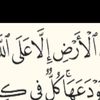 ٱلْأَرْضِ إِلَّا عَلَى ٱللَّ
وْدَعَهَا ۚ كُلٌّ فِى كِ